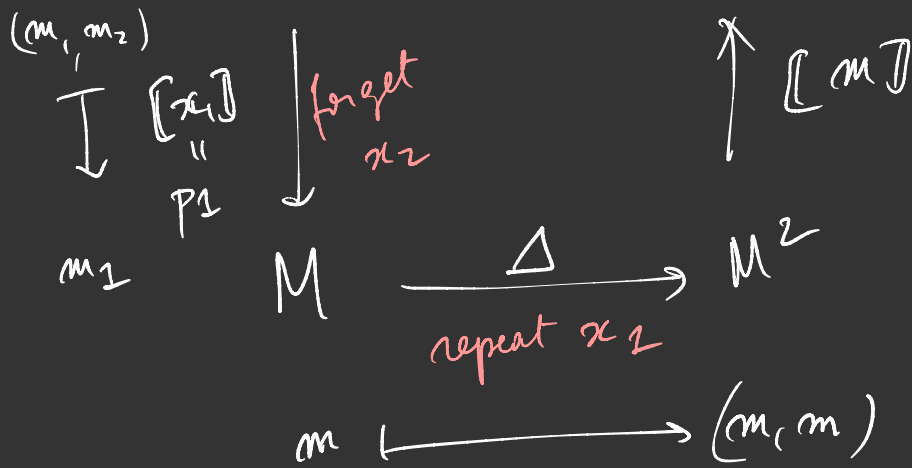 (m, m₂)
⟦x₁⟧
forget
⟦m⟧
=
x₂
p1
m₁
M
Δ
M²
repeat x₁
m ↦ (m, m)